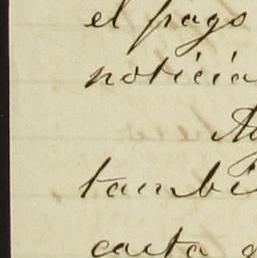 el pago
noticia
tambi
carta